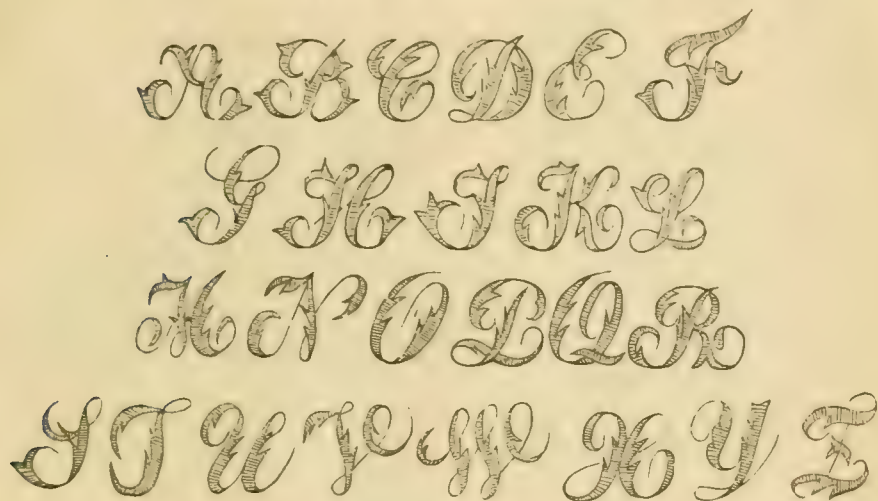 A B C D E F
G H I K L
M N O P Q R
S T U V W X Y Z